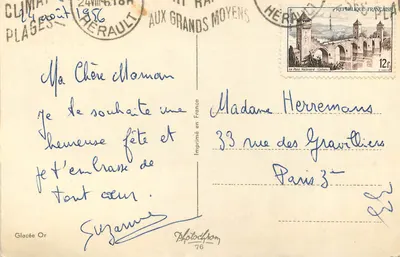 CLIMAT
PLAGES
24 août 1956
24 VIII 6.18H
HÉRAULT
AUX GRANDS MOYENS
HÉRAULT
RÉPUBLIQUE FRANÇAISE
12F
Ma Chère Maman
Je te souhaite une
heureuse fête et
je t'embrasse de
tout cœur.
Suzanne
Imprimé en France
Madame Herremans
33 rue des Gravilliers
Paris 3e
Glacée Or
Photochrom
76